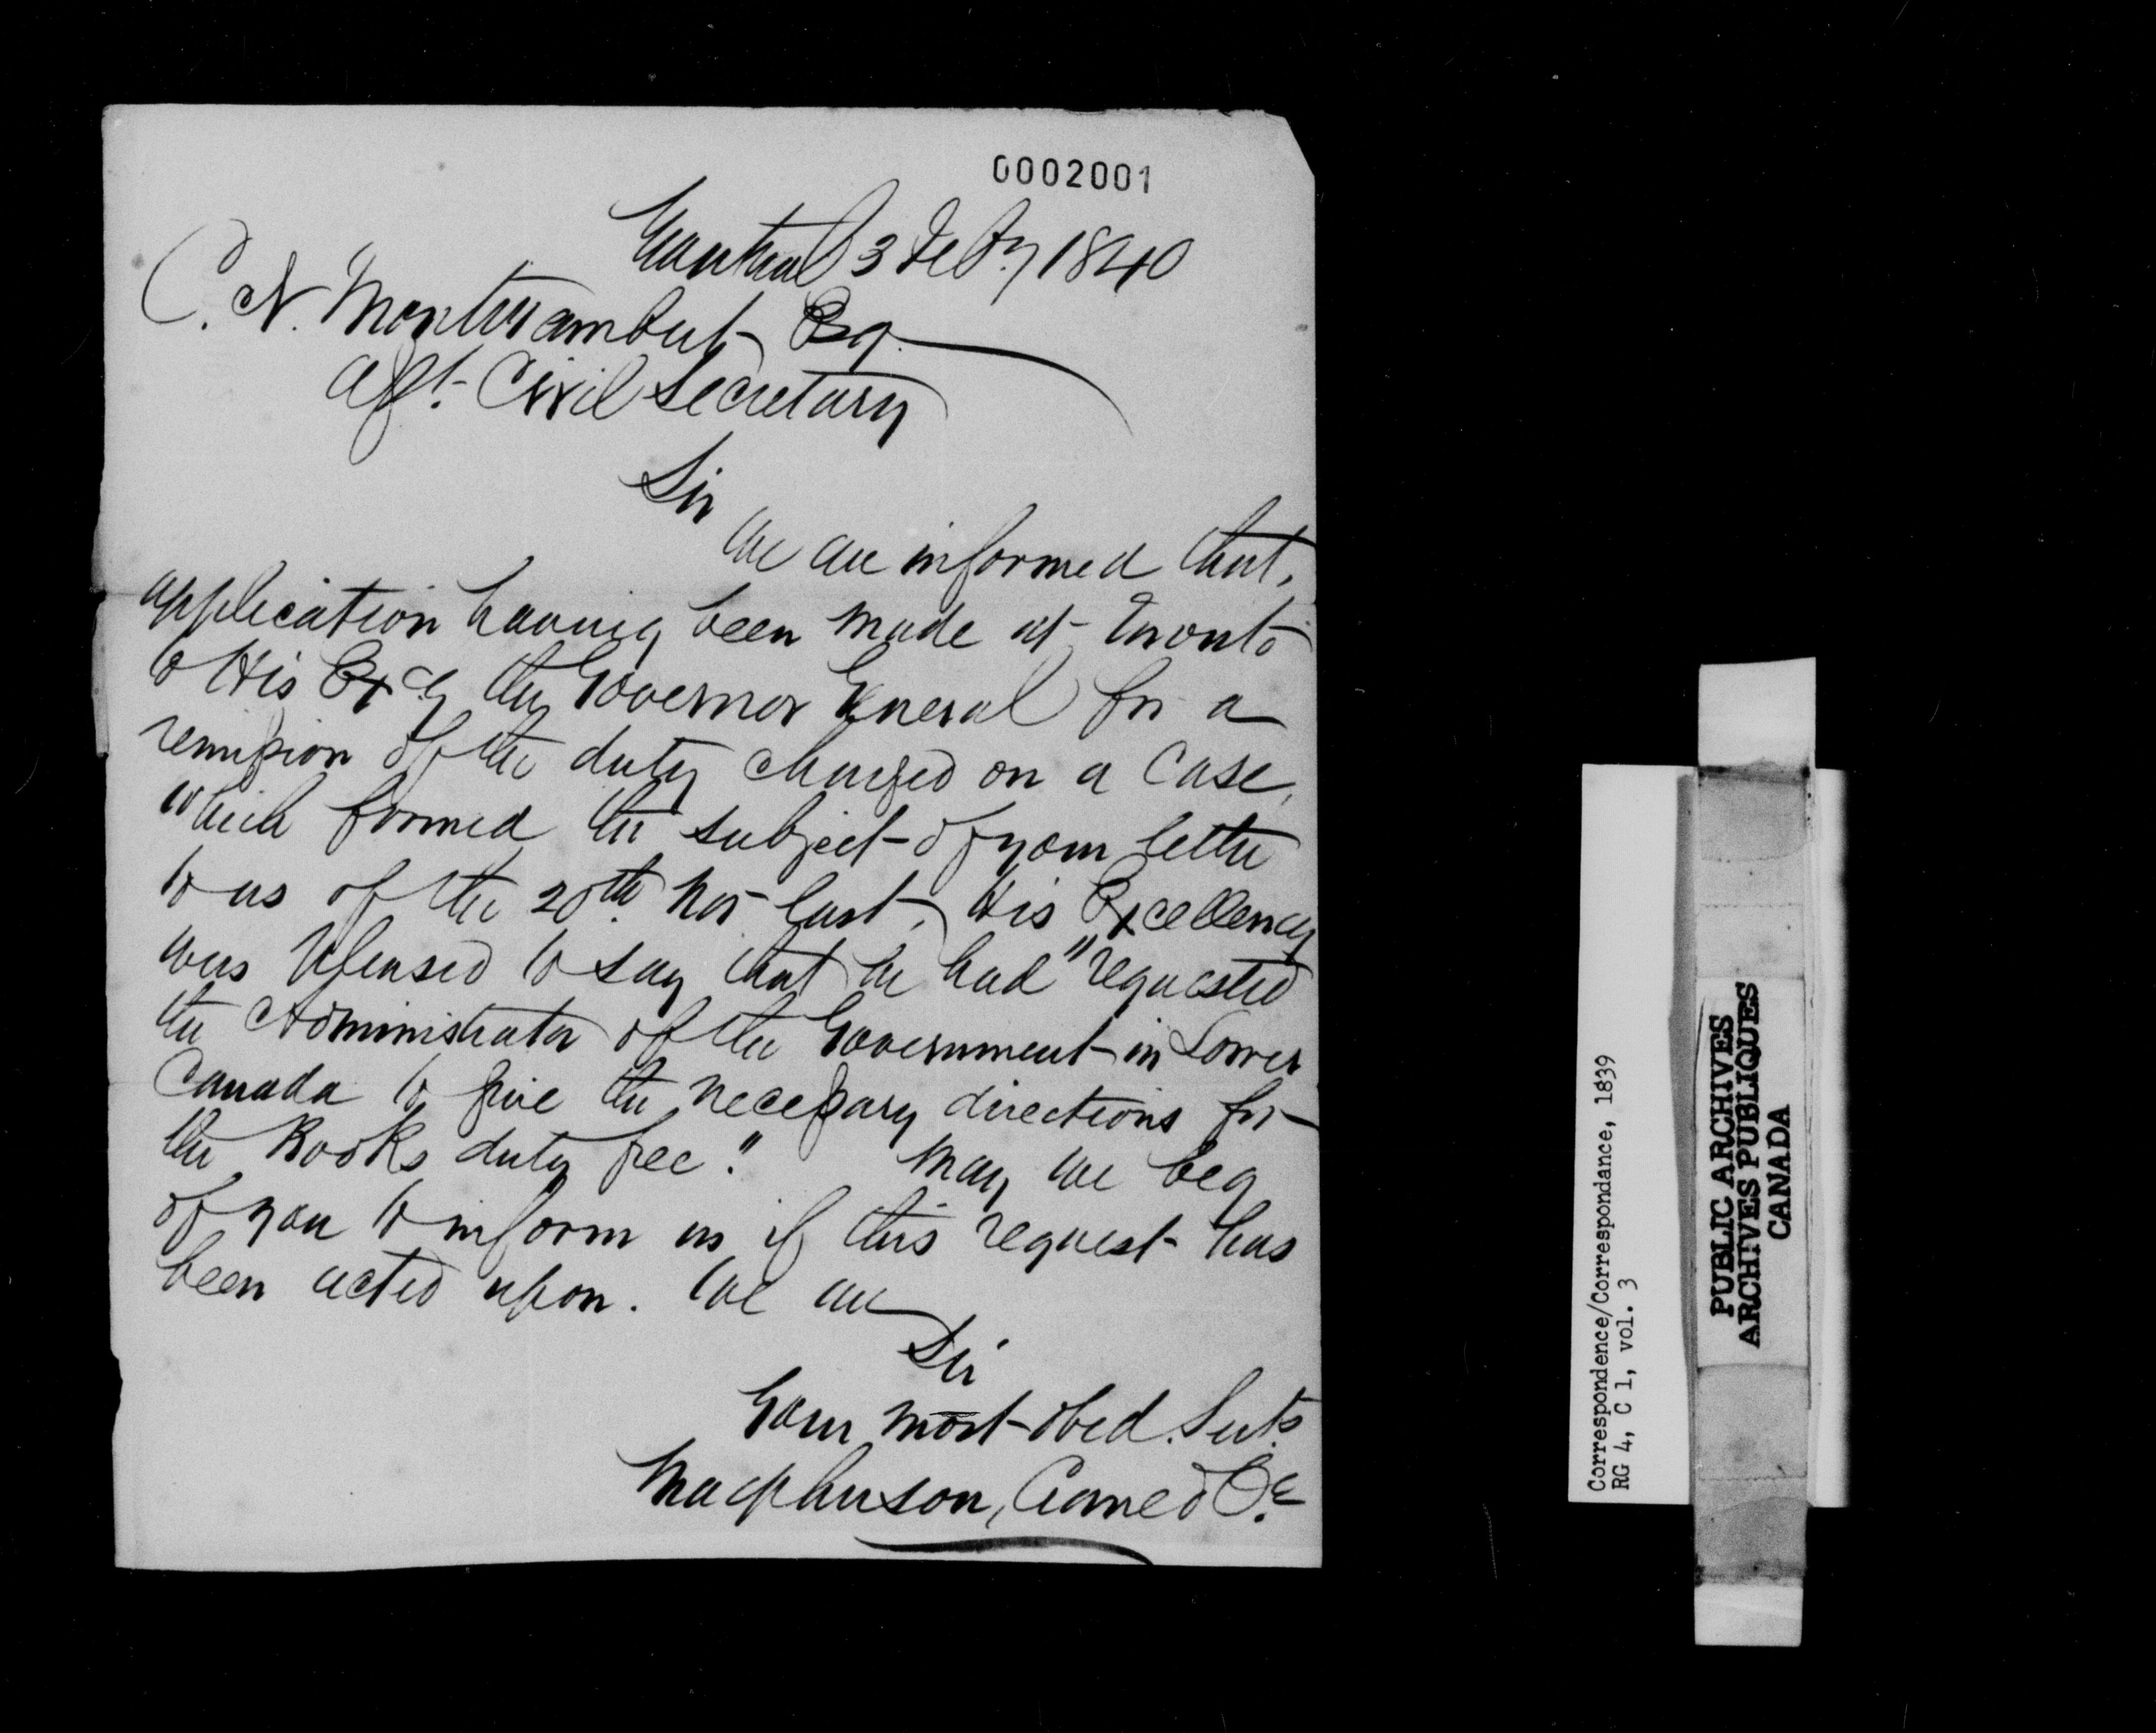 0002001
Montreal 3 Feby 1840
C. N. Montizambert Esq.
Asst. Civil Secretary
Sir
We are informed that,
application having been made at Toronto
to His Excy the Governor General for a
remission of the duty charged on a Case,
which formed the subject of your letter
to us of the 20th Nov last, His Excellency
was pleased to say that he had "requested
the Administrator of the Government in Lower
Canada to give the necessary directions for
the Books duty free." May we beg
of you to inform us if this request has
been acted upon. We are
Sir
Your most obed. Servts.
Macpherson, Crane & Co.
Correspondence/Correspondance, 1839
RG 4, C 1, vol. 3
PUBLIC ARCHIVES
ARCHIVES PUBLIQUES
CANADA